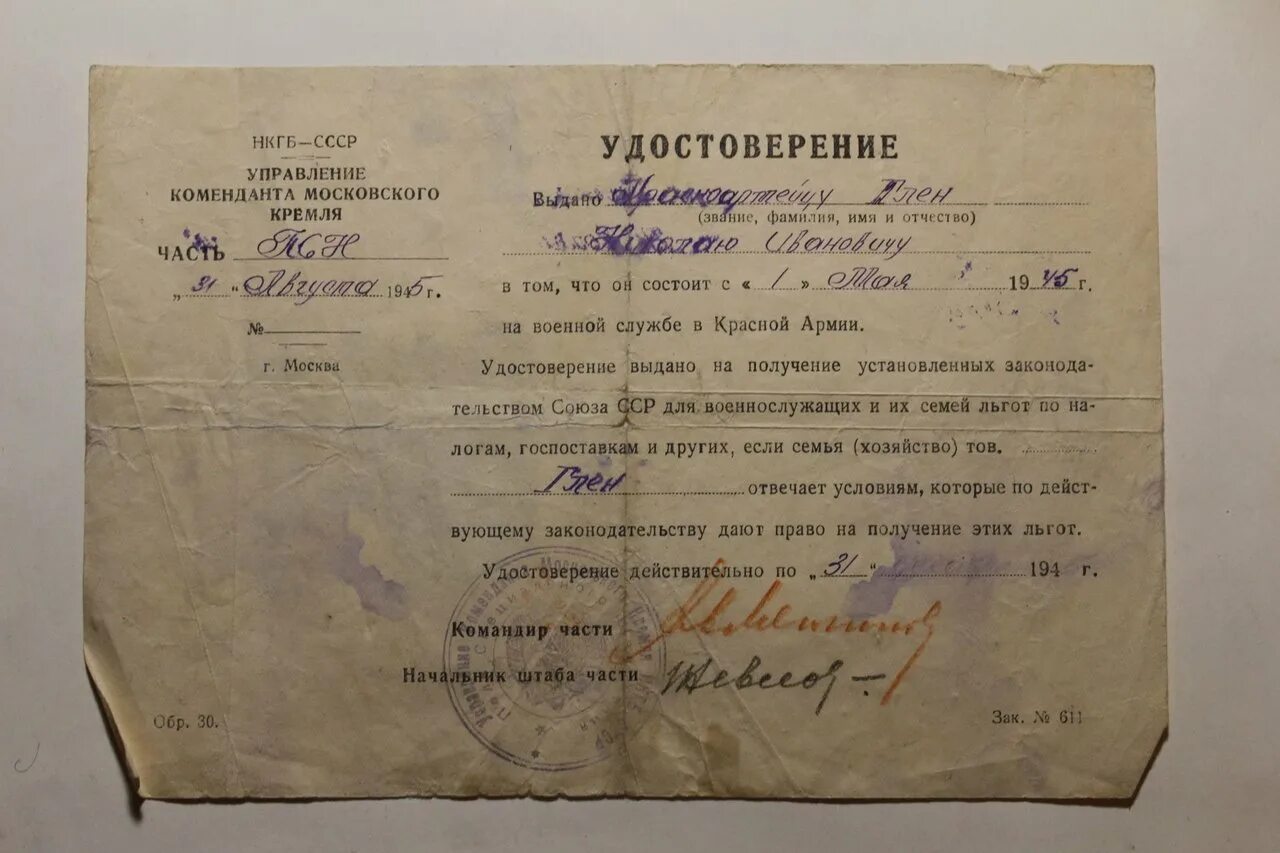 НКГБ—СССР
УПРАВЛЕНИЕ
КОМЕНДАНТА МОСКОВСКОГО
КРЕМЛЯ
ЧАСТЬ ПСН
„31" Августа 1945 г.
№
г. Москва
УДОСТОВЕРЕНИЕ
Выдано Красноармейцу Глен
(звание, фамилия, имя и отчество)
Николаю Ивановичу
в том, что он состоит с «1» Мая 1945 г.
на военной службе в Красной Армии.
Удостоверение выдано на получение установленных законода-
тельством Союза ССР для военнослужащих и их семей льгот по на-
логам, госпоставкам и других, если семья (хозяйство) тов.
Глен отвечает условиям, которые по дейст-
вующему законодательству дают право на получение этих льгот.
Удостоверение действительно по „31" 194 г.
Командир части
Начальник штаба части
Обр. 30.
Зак. № 611